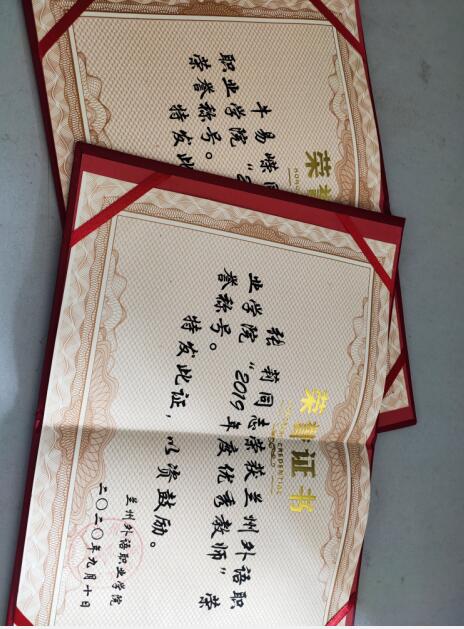 荣誉
牛易嵘同
职业学院“2
荣誉称号。
特发此
荣誉证书
张莉同志荣获兰州外语职
业学院“2019年度优秀教师”荣
誉称号。
特发此证,以资鼓励。
兰州外语职业学院
二〇二〇年九月十日